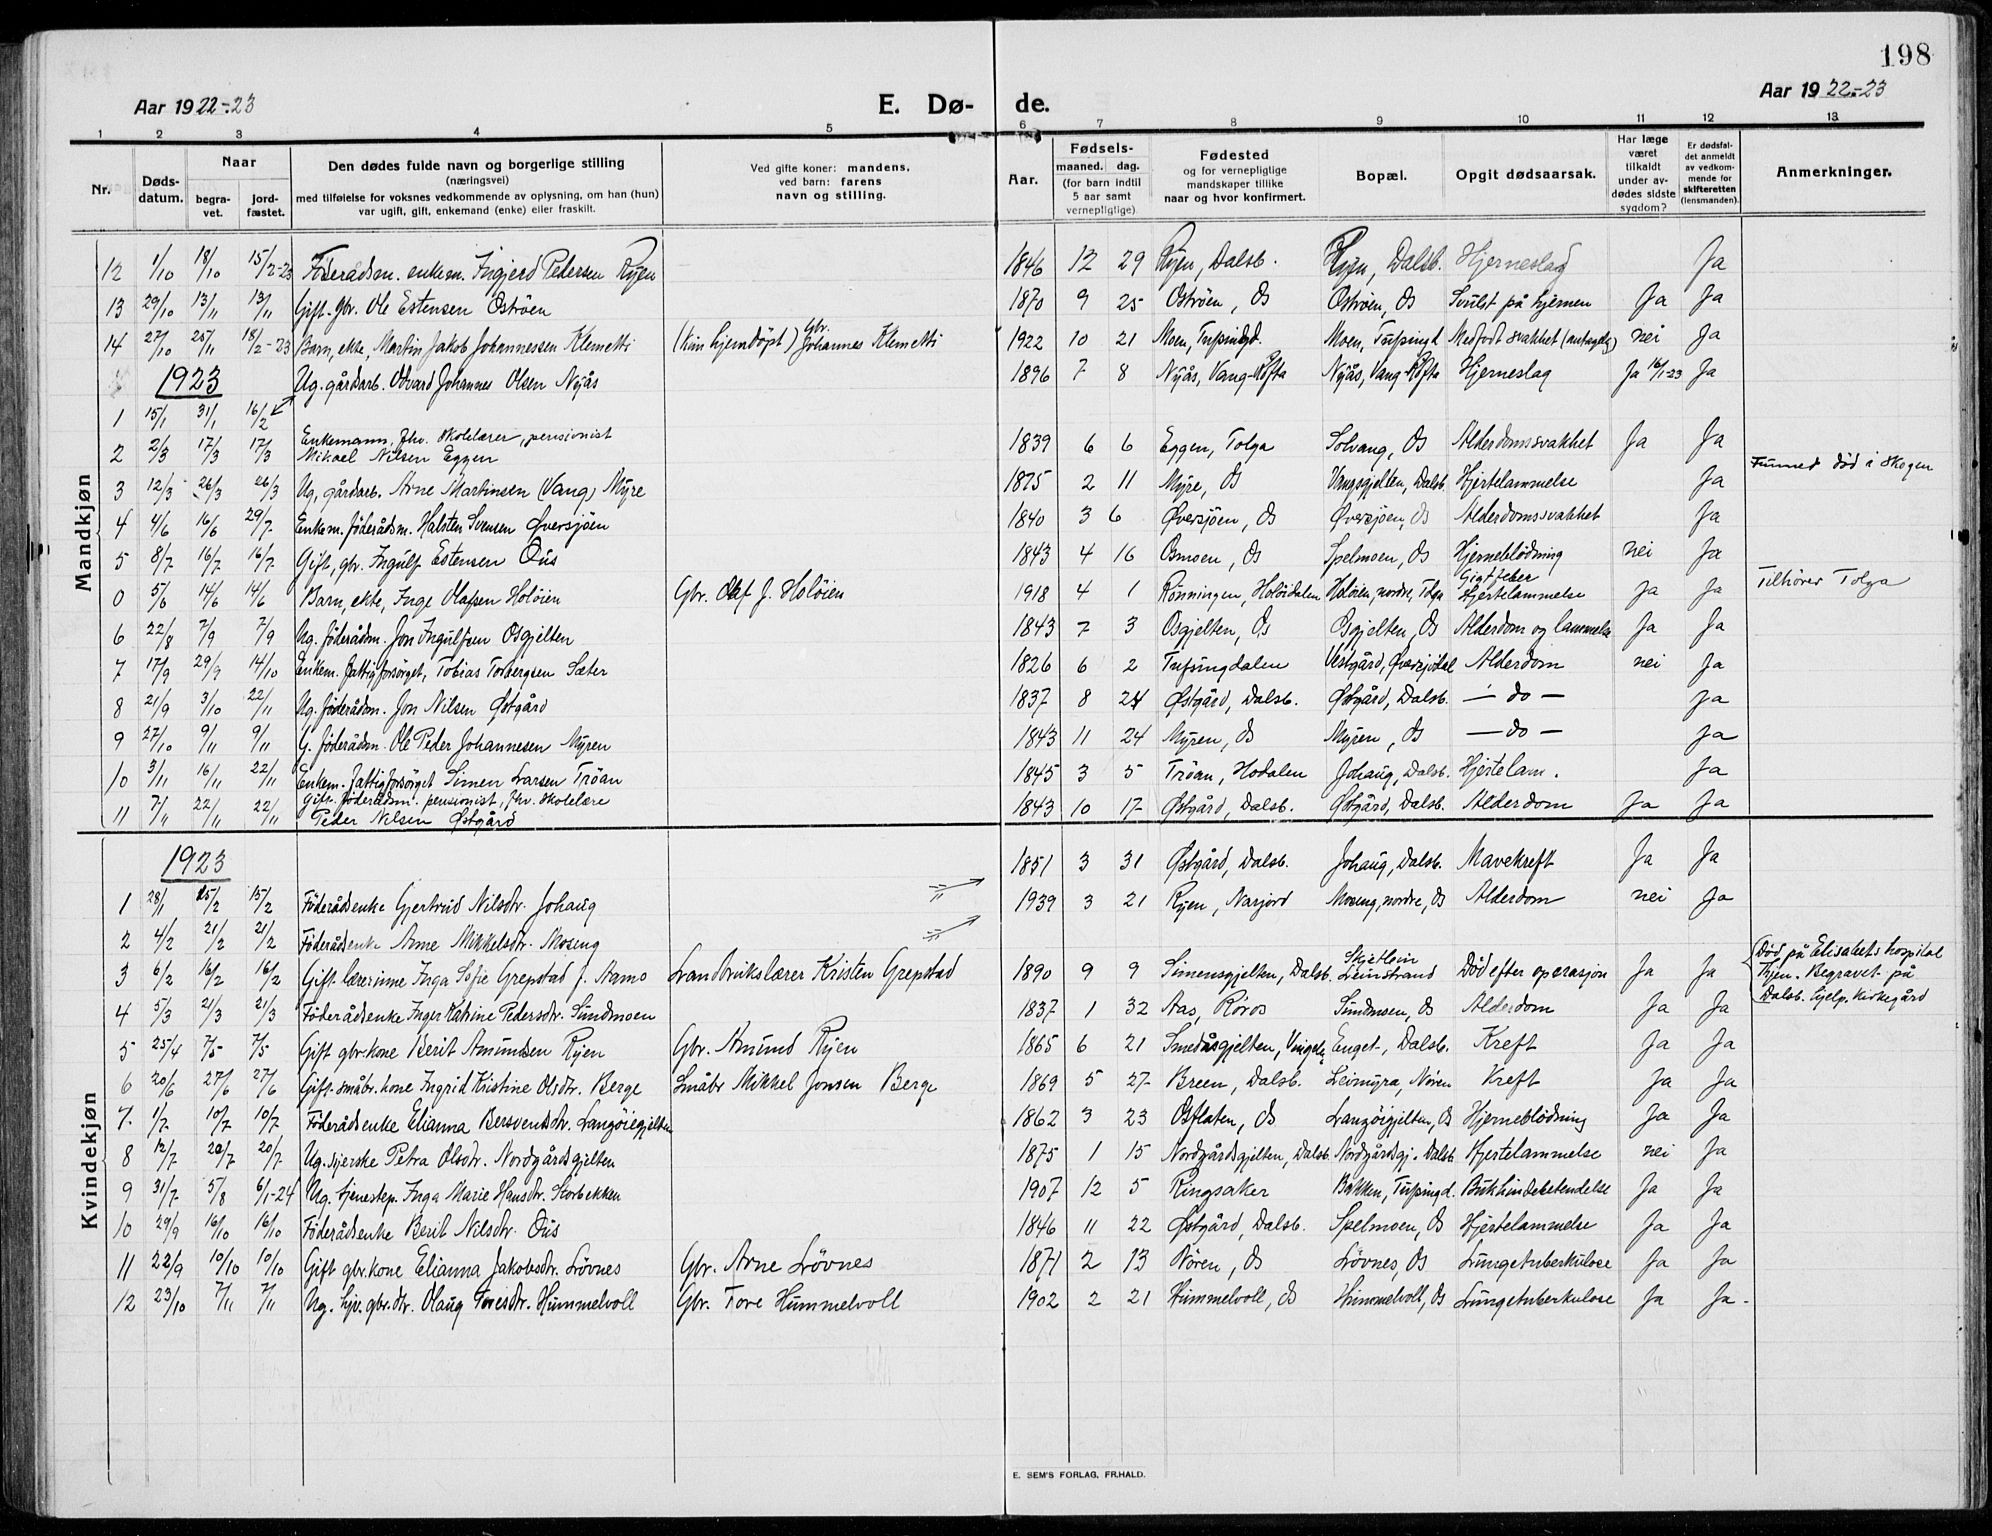 198
Aar 1922-23 E. Dø- de. Aar 1922-23
1 2 3 4 5 6 7 8 9 10 11 12 13
Nr. Døds-datum. Naar begra-vet. jord-fæstet. Den dødes fulde navn og borgerlige stilling (næringsvei) med tilføielse for voksnes vedkommende av oplysning, om han (hun) var ugift, gift, enkemand (enke) eller fraskilt. Ved gifte koner: mandens, ved barn: farens navn og stilling. Aar. Fødsels- maaned. dag. (for barn indtil 5 aar samt vernepligtige) Fødested og for vernepligtige mandskaper tillike naar og hvor konfirmert. Bopæl. Opgit dødsaarsak. Har læge været tilkaldt under av-dødes sidste sygdom? Er dødsfal-det anmeldt av vedkom-mende for skifteretten (lensmanden). Anmerkninger.
Mandkjøn
12 1/10 18/10 15/2-23 Føderådsm. enkem. Ingjerd Pedersen Ryen 1846 12 29 Ryen, Dalsb. Ryen, Dalsb. Hjerneslag Ja
13 29/10 13/11 13/11 Gift. gbr. Ole Estensen Østrøen 1870 9 25 Østrøen, Os Østrøen, Os Svulst på hjernen Ja Ja
14 27/10 25/11 18/2-23 Barn, ekte, Martin Jakob Johannessen Klemetti (Kun hjemdøpt) Gbr. Johannes Klemetti 1922 10 21 Moen, Tufsingd. Moen, Tufsingd Medfødt svakhet (antagelig) nei Ja
1923 Ug. gårdarb. Edvard Johannes Olsen Nyås 1896 7 8 Nyås, Vang-Løfta Nyås, Vang-Løfta Hjerneslag Ja 16/1-23 Ja
1 15/1 31/1 16/2
2 2/3 17/3 17/3 Enkemann, fhv. skolelærer, pensionist Mikael Nilsen Eggen 1839 6 6 Eggen, Tolga Solvang, Os Alderdomssvakhet Ja Ja
3 12/3 26/3 26/3 Ug, gårdarb. Arne Martinsen (Vang) Myre 1875 2 11 Myre, Os Vangsgjelten, Dalsb. Hjertelammelse Ja Funnet død i skogen
4 4/6 16/6 29/7 Enkem. føderådm. Halsten Svensen Øversjøen 1840 3 6 Øversjøen, Os Øversjøen, Os Alderdomssvakhet Ja
5 8/7 16/7 16/7 Gift, gbr. Ingulf Estensen Ous 1843 4 16 Osmoen, Os Spelmoen, Os Hjerneblødning nei Ja
0 5/6 14/6 14/6 Barn, ekte, Inge Olafsen Holøien Gbr. Olaf J. Holøien 1918 4 1 Rønningen, Holøidalen Holøien, nordre, Tolga Gigtfeber Hjertelammelse Ja Ja Tilhører Tolga
6 22/8 7/9 7/9 Ug. føderådm. Jon Ingulfsen Osgjelten 1843 7 3 Osgjelten, Os Osgjelten, Os Alderdom og lammelse Ja Ja
7 17/9 29/9 14/10 Enkem. fattigforsørget, Tobias Torbergsen Sæter 1826 6 2 Tufsingdalen Vestgård, Øversjødal Alderdom nei Ja
8 21/9 3/10 22/11 Ug. føderådm. Jon Nilsen Østgård 1837 8 24 Østgård, Dalsb. Østgård, Dalsb. — do — Ja
9 27/10 9/11 9/11 G. føderådm Ole Peder Johannesen Myren 1843 11 24 Myren, Os Myren, Os — do — Ja
10 3/11 16/11 22/11 Enkem. fattigforsørget Simen Larsen Trøan 1845 3 5 Trøan, Hodalen Johaug, Dalsb. Hjertelam. Ja
11 7/11 22/11 22/11 Gift. føderådm. pensionist, fhv. skolelære Peder Nilsen Østgård 1843 10 17 Østgård, Dalsb. Østgård, Dalsb. Alderdom Ja Ja
Kvindekjøn
1923 1851 3 31 Østgård, Dalsb. Johaug, Dalsb. Mavekreft Ja Ja
1 28/1 15/2 15/2 Føderådsenke Gjertrud Nilsdtr. Johaug 1939 3 21 Ryen, Narjord Moseng, nordre, Os Alderdom nei Ja
2 4/2 21/2 21/2 Føderådsenke Anne Mikkelsdtr. Moseng
3 6/2 16/2 16/2 Gift lærerinne Inga Sofie Grepstad f. Aamo Landbrukslærer Kristen Grepstad 1890 9 9 Simensgjelten, Dalsb. Skjetlein Leinstrand Død efter operasjon Ja Ja Død på Elisabets hospital Tjen. Begravet på Dalsb. hjelp. kirkegård
4 5/3 21/3 21/3 Føderådsenke Inger Katrine Pedersdtr. Sundmoen 1837 1 32 Aas, Røros Sundmoen, Os Alderdom Ja Ja
5 25/4 7/5 7/5 Gift gbr.kone Berit Amundsen Ryen Gbr. Amund Ryen 1865 6 21 Smedåsgjelten, Vingelen Enget, Dalsb. Kreft Ja Ja
6 20/6 27/6 27/6 Gift. småbr. kone Ingrid Kristine Olsdtr. Berge Småbr Mikkel Jonsen Berge 1869 5 27 Breen, Dalsb. Leimyra, Nøren Kreft Ja Ja
7 1/7 10/7 10/7 Føderådsenke Elianna Bersvensdtr. Langøiegjelten 1862 3 23 Osflaten, Os Langøigjelten, Os Hjerneblødning Ja Ja
8 12/7 20/7 20/7 Ug. syerske Petra Olsdtr. Nordgårdsgjelten 1875 1 15 Nordgårdsgjelten, Dalsb Nordgårdsgj. Dalsb Hjertelammelse nei Ja
9 31/7 5/8 6/1-24 Ug. tjenestep. Inga Marie Hansdtr. Storbekken 1907 12 5 Ringsaker Bakken, Tufsingd. Bukhindebetendelse Ja Ja
10 29/9 16/10 16/10 Føderådsenke Berit Nilsdtr. Ous 1846 11 22 Østgård, Dalsb. Spelmoen, Os Hjertelammelse Ja Ja
11 22/9 10/10 10/10 Gift gbr.kone Elianna Jakobsdtr. Løvnes Gbr. Arne Løvnes 1871 2 13 Nøren, Os Løvnes, Os Lungetuberkulose Ja Ja
12 23/10 7/11 7/11 Ug. hjv. gbr.dtr. Olaug Toresdtr. Hummelvoll Gbr. Tore Hummelvoll 1902 2 21 Hummelvoll, Os Hummelvoll, Os Lungetuberkulose Ja Ja.
E. SEM'S FORLAG, FR.HALD.